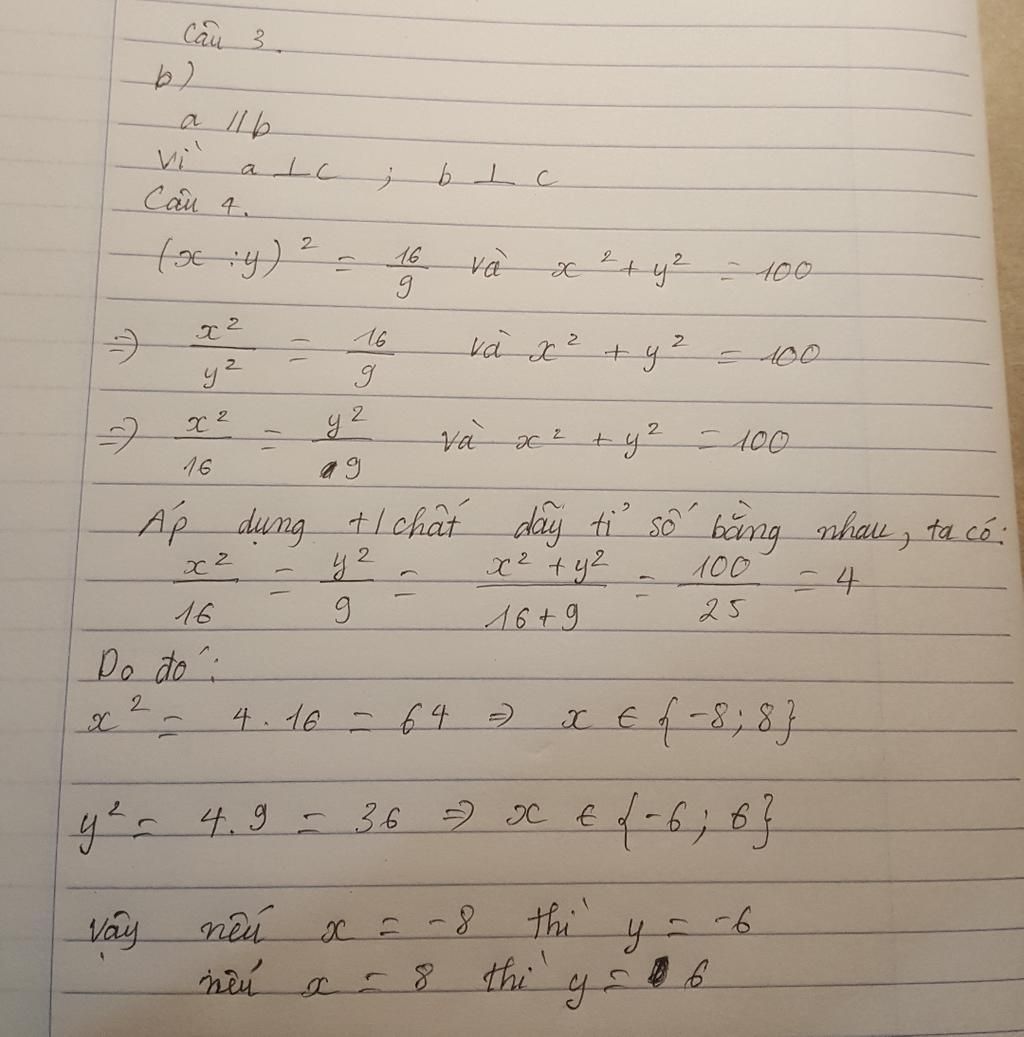 Câu 3.
b)
a // b
Vì a ⊥ c ; b ⊥ c
Câu 4.
(x : y)² = 16/9 và x² + y² = 100
=> x²/y² = 16/9 và x² + y² = 100
=> x²/16 = y²/9 và x² + y² = 100
Áp dụng t/chất dãy tỉ số bằng nhau, ta có:
x²/16 = y²/9 = (x² + y²)/(16 + 9) = 100/25 = 4
Do đó:
x² = 4 . 16 = 64 => x ∈ {-8; 8}
y² = 4 . 9 = 36 => x ∈ {-6; 6}
Vậy nếu x = -8 thì y = -6
nếu x = 8 thì y = 6